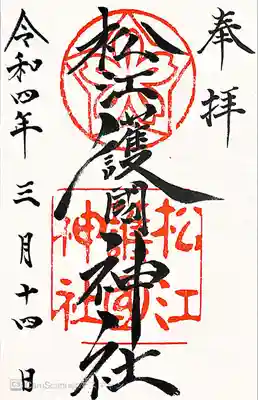 奉拝
松江護國神社
松江
護國
神社
令和四年三月十四日